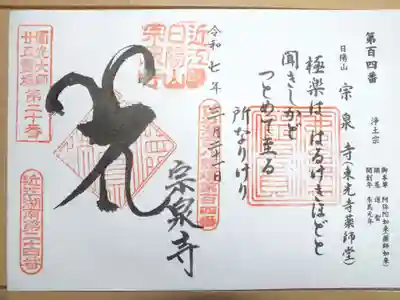 第百四番
浄土宗
日陽山
宗泉寺(東光寺薬師堂)
御本尊 阿弥陀如来(薬師如来)
開創年 朱鳥元年
極楽は はるけきほどと
聞きしかど
つとめて至る
所なりけり
令和七年
二月二十一日
近江
日陽山
宗泉寺
圓光大師
廿五霊場
第二十番
宗泉寺
近江湖南第二十四番